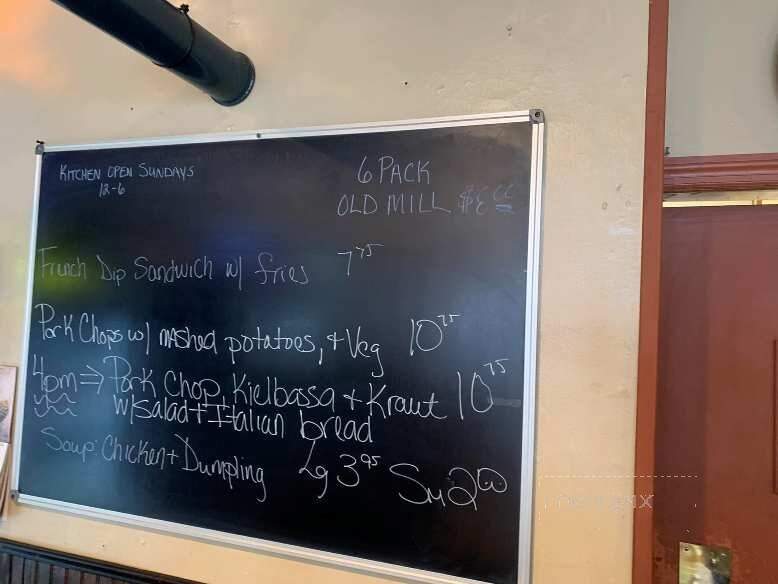 KITCHEN OPEN SUNDAYS
12-6
6 PACK
OLD MILL
French Dip Sandwich w/ fries 7 75
Pork Chops w/ mashed potatoes, + Veg 10 25
4pm ⇒ Pork Chop, Kielbassa + Kraut 10 75
w/salad + Italian bread
Soup: Chicken + Dumpling Lg 3 95 Sm 2 00